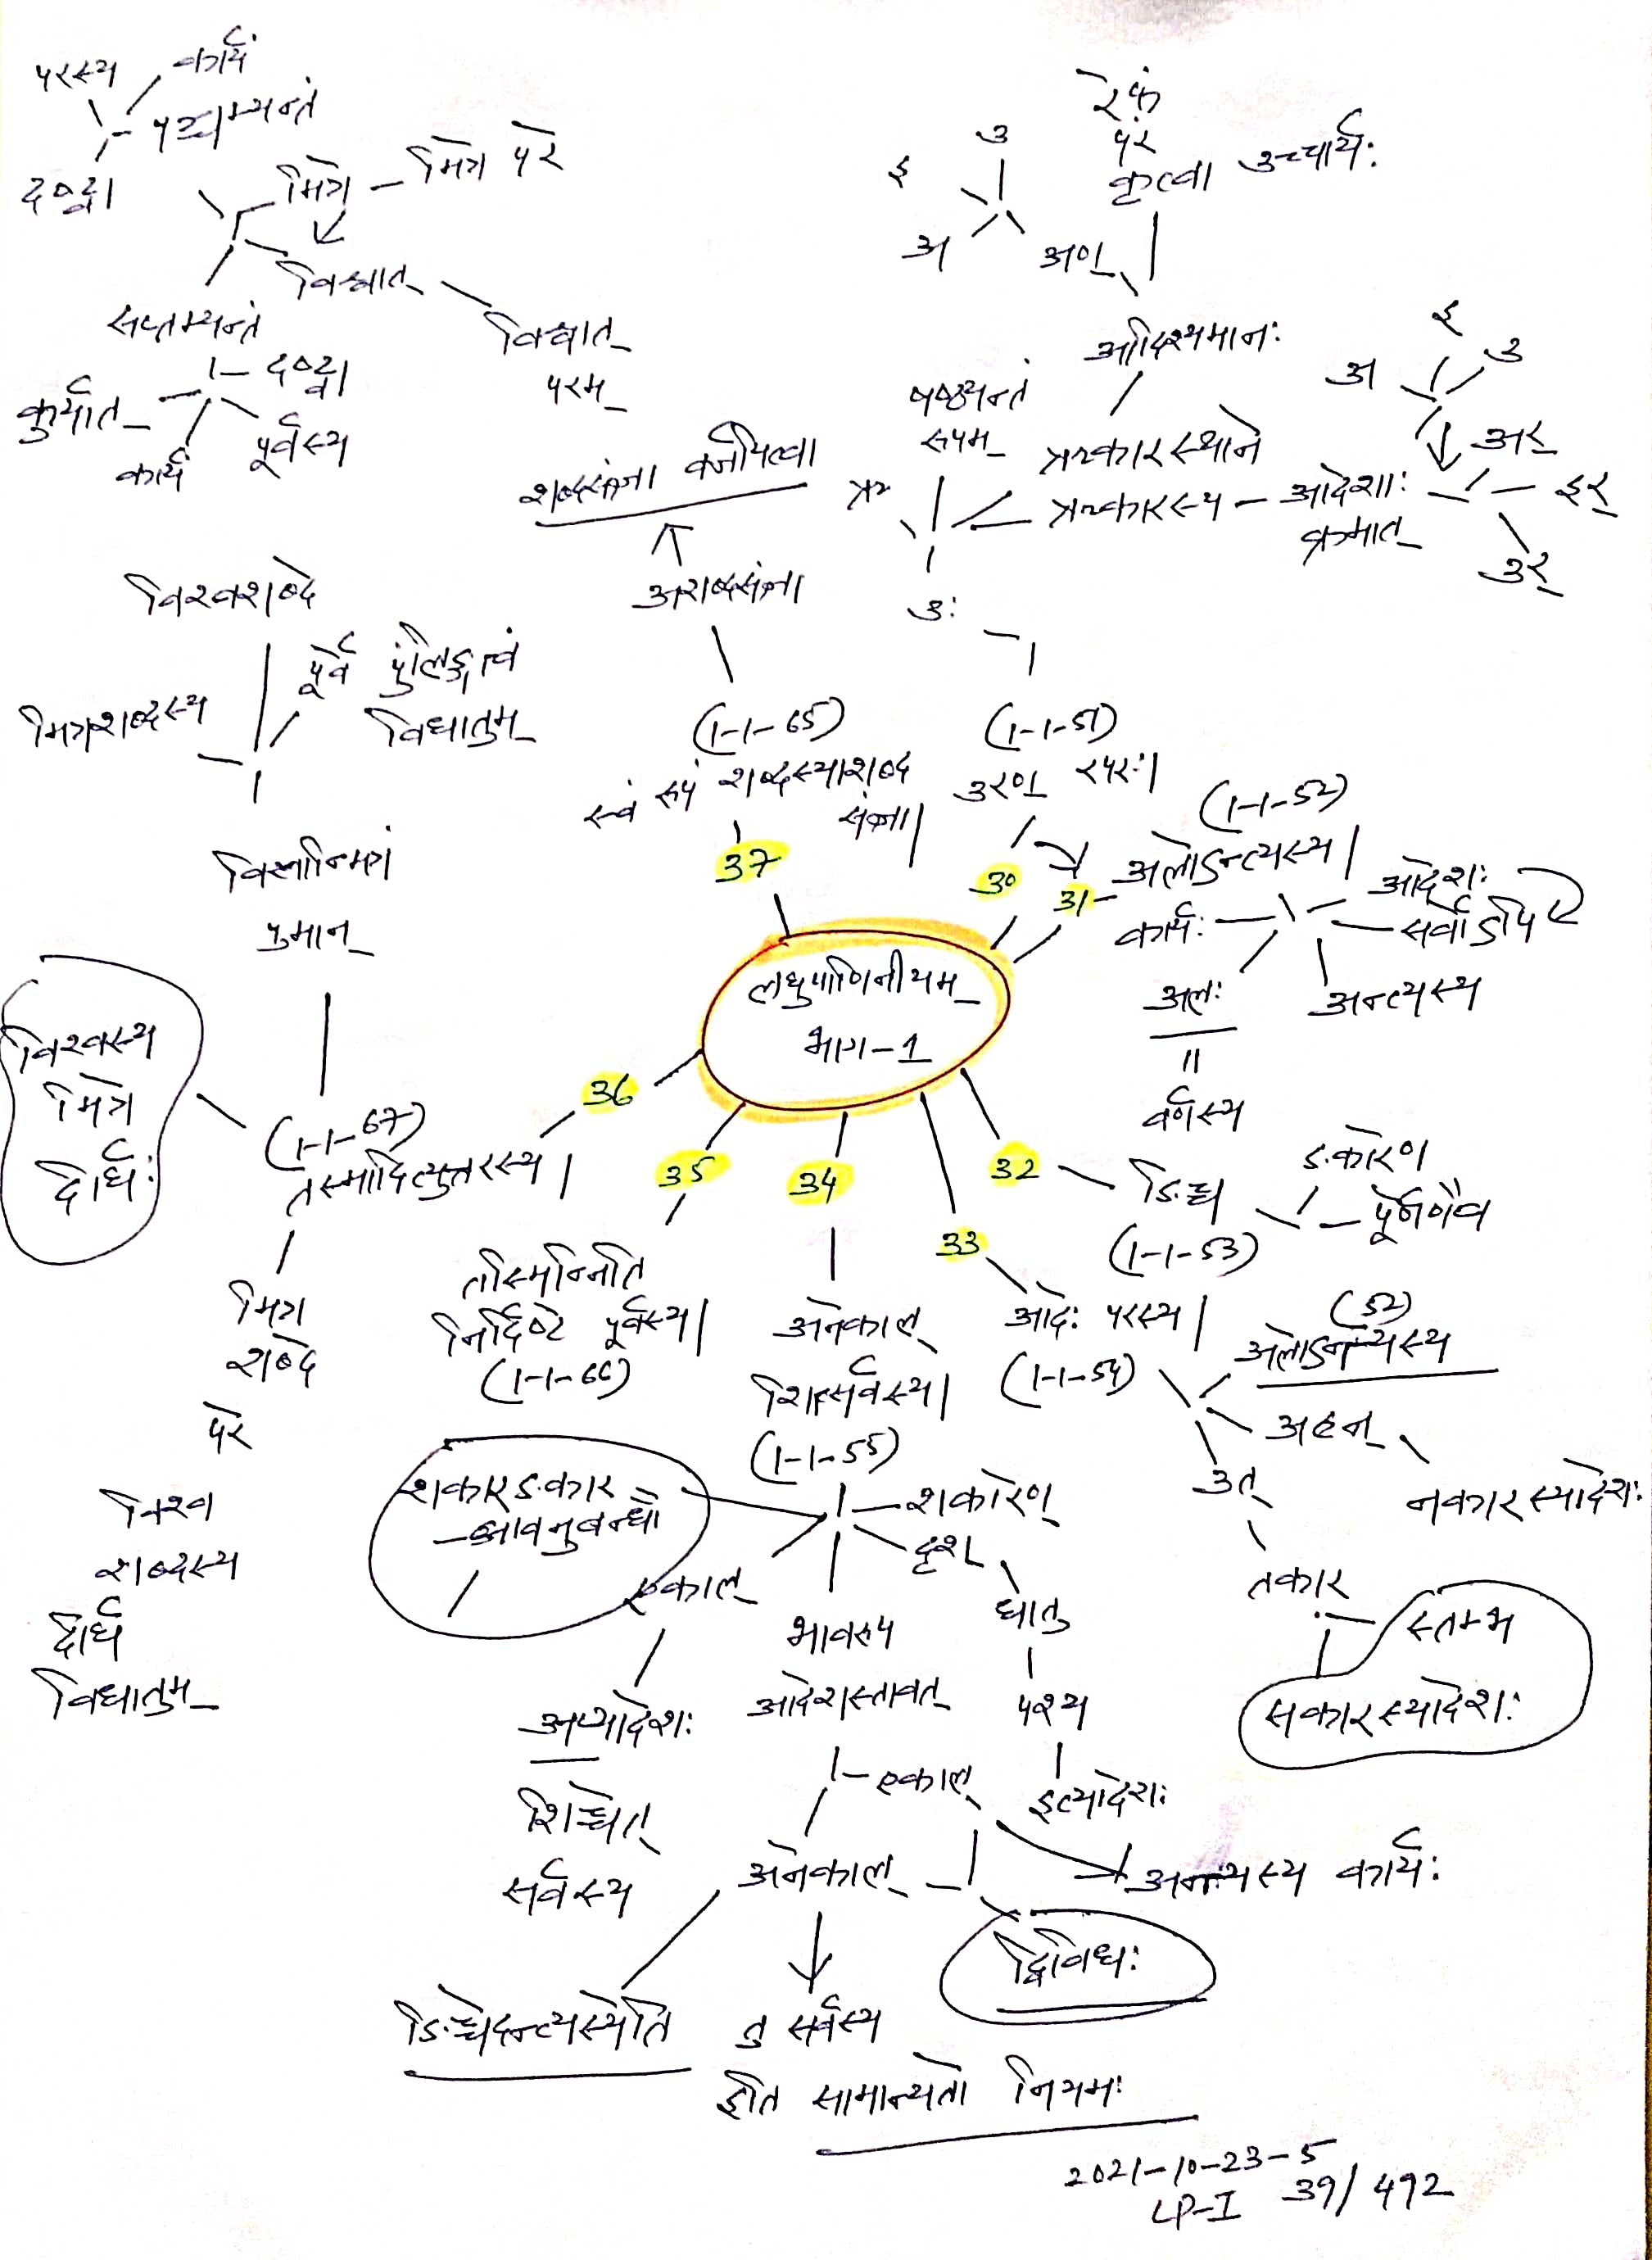 परस्य
कार्यं
पञ्चम्यन्तं
दृष्ट्वा
मित्रे
मित्रे परे
सप्तम्यन्तं
विश्वात्
परम्
दृष्ट्वा
कुर्यात्
कार्यं
पूर्वस्य
रेफं
परं
कृत्वा
उच्चार्यः
इ
उ
अ
अण्
आदिश्यमानः
षष्ठ्यन्तं
रूपम्
ऋकारस्थाने
ऋ
ऋकारस्य
आदेशाः
क्रमात्
अ
इ
उ
अर्
इर्
उर्
उः
शब्दसंज्ञा वर्जयित्वा
अशब्दसंज्ञा
विश्वशब्दे
मित्रशब्दस्य
पूर्वं पुंलिङ्गत्वं
विधातुम्
पुमान्
(1-1-65)
स्वं रूपं शब्दस्याशब्द
संज्ञा|
37
(1-1-51)
उरण् रपरः|
30
31
(1-1-52)
अलोऽन्त्यस्य|
कार्यः
आदेशः
सर्वोऽपि
अन्त्यस्य
अलः
॥
वर्णस्य
लघुपाणिनीयम्
भाग-1
विश्वस्य
मित्रे
दीर्घः
36
(1-1-67)
तस्मादित्युत्तरस्य|
मित्र
शब्दे
परे
विश्व
शब्दस्य
दीर्घं
विधातुम्
35
तस्मिन्निति
निर्दिष्टे पूर्वस्य|
(1-1-66)
34
अनेकाल्
शित्सर्वस्य|
(1-1-55)
33
आदेः परस्य|
(1-1-54)
32
ङिच्च
(1-1-53)
ङकारेण
(52)
अलोऽन्त्यस्य
अहन्
नकारस्यादेशः
उत्
तकार
स्तम्भ
सकारस्यादेशः
शकारङकार
-आवनुबन्धौ
शकारेण
दृश्
धातु
पश्य
इत्यादेशः
एकाल्
अप्यादेशः
शिच्चेत्
सर्वस्य
भावरूप
आदेशस्तावत्
एकाल्
अनेकाल्
अन्त्यस्य कार्यः
द्विविधः
ङिच्चेदन्त्यस्येति
तु सर्वस्य
इति सामान्यतो नियमः
2021-10-23-5
LP-I 39/492